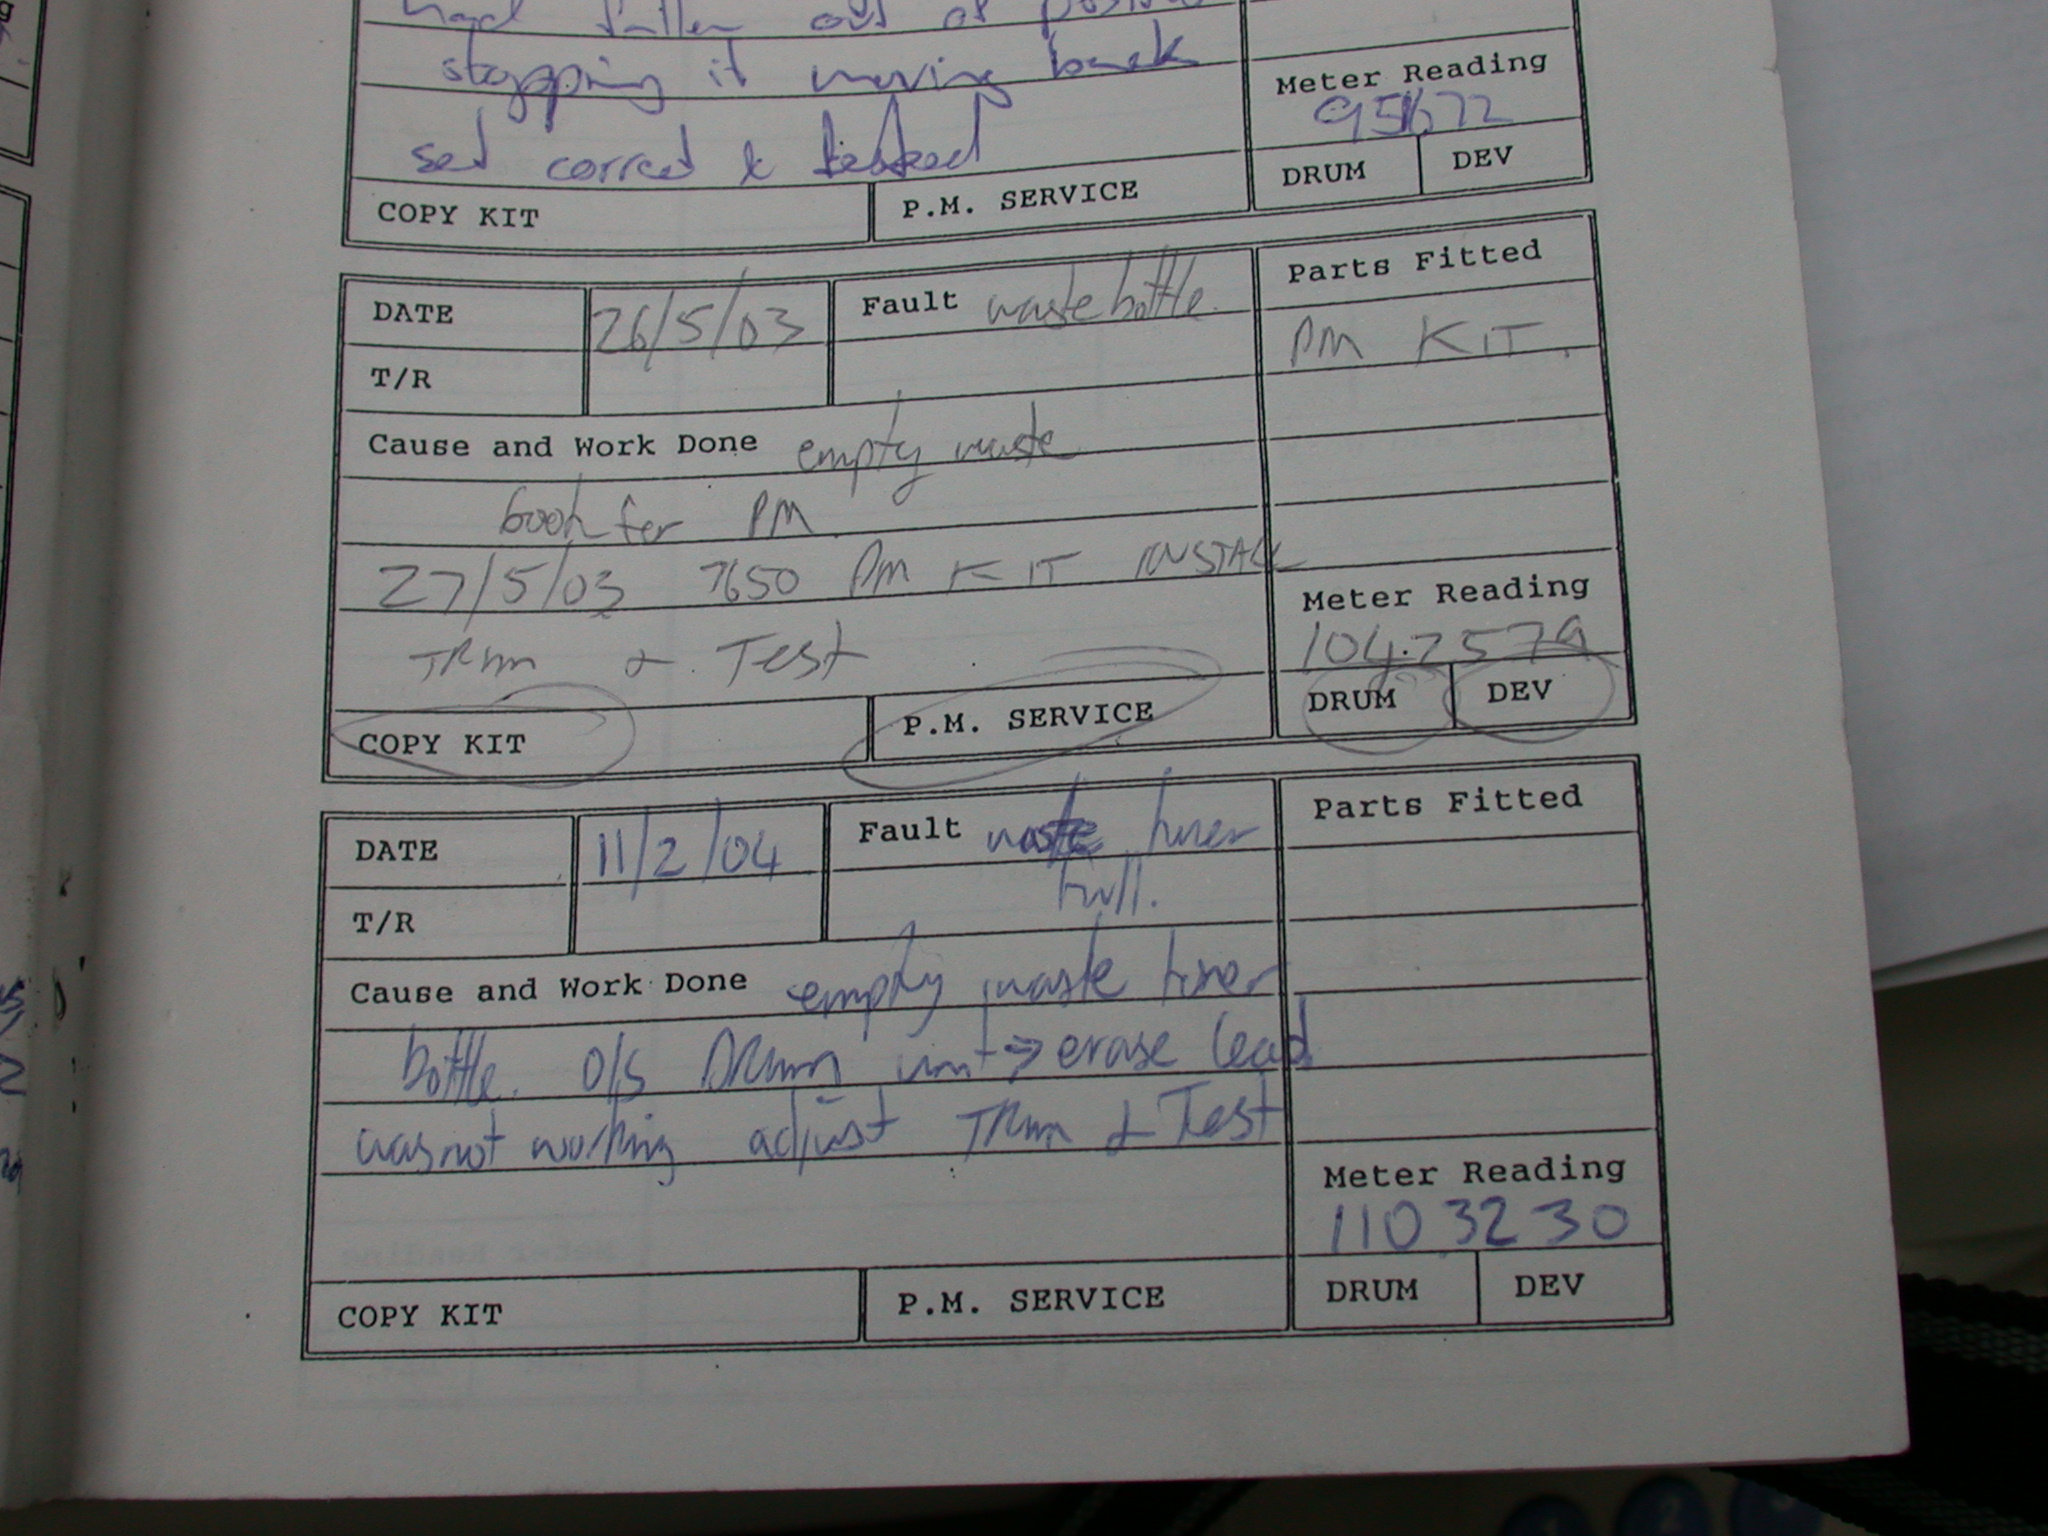 had fallen out of
stopping it moving back
set correct & tested
Meter Reading
951672
DRUM DEV
COPY KIT P.M. SERVICE
DATE 26/5/03 Fault waste bottle. Parts Fitted
PM KIT.
T/R
Cause and Work Done empty waste
book for PM
27/5/03 7650 PM KIT INSTALL
TRIM & Test
Meter Reading
1042579
COPY KIT P.M. SERVICE DRUM DEV
DATE 11/2/04 Fault waste toner Parts Fitted
full.
T/R
Cause and Work Done empty waste toner
bottle. O/S DRUM unit => erase lead
was not working adjust TRIM & Test
Meter Reading
1103230
COPY KIT P.M. SERVICE DRUM DEV